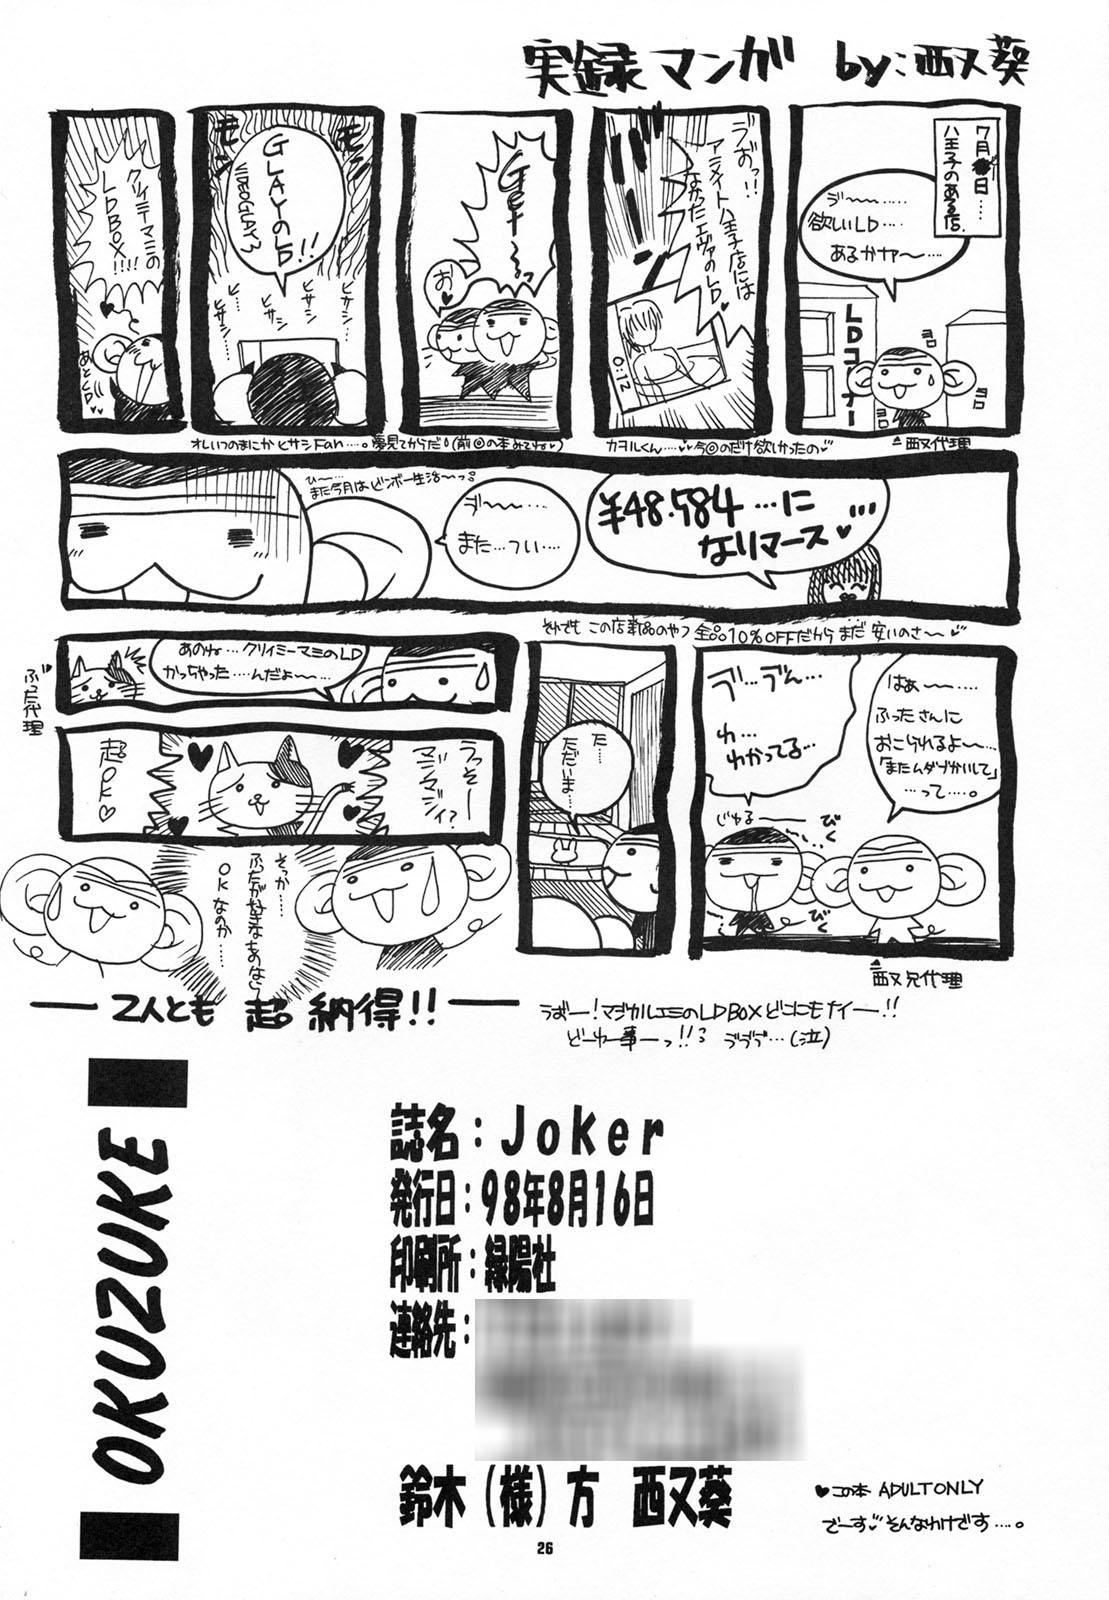 実録マンガ by:西又葵
7月日…
八王子のある店.
ゔ〜〜……
欲しいLD…
あるかヤァ〜…
LDコーナー
ヨロ
ヨロ
西又代理
ゔおっ!!
アニメイト八王子店には
なかったエヴァのLD♥
0:12
カヲルくん…♥♥今回のだけ欲しかったの♥
Get〜るっ
お♥
GLAYのLD!!
VIDEO GLAY 3
モン
モン
ヒサシ
ヒサシ
ヒサシ
ヒサシ
オレいつのまにかヒサシFan…。夢見てからだ!(前回の本みてね♥)
クリィミーマミの
LDBOX!!!!
あとCD♥♥
¥48.584…に
なりマース♥
ゔ〜〜…
また…つい…
ひ〜…
また今月はビンボー生活〜っ。
それでも この店新品のやつ 全品10%OFFだからまだ 安いのさ〜♥
はぁ〜〜……
ふったさんに
おこられるよ〜…
「またムダづかいして」
…って…。
ゔ…ゔん…
わ…
わかってる…
じゅる〜
びく
びく
西又兄代理
た…
ただいま…
あのね…クリィミーマミのLD
かっちゃった…んだよ〜…
ぶった代理
うっそー
マジマジィ?
超OK♥
そっか……
ぶたが好きなあなら
OKなのか…
―2人とも 超 納得!!―
うおー!マジカルエミのLDBOXどこにもナイー!!
どーゆー事ーっ!!? ゔゔゔ…(泣)
OKUZUKE
誌名:Joker
発行日:98年8月16日
印刷所:緑陽社
連絡先:
鈴木(様)方 西又葵
♥この本 ADULT ONLY
でーす♥そんなわけです…。
26